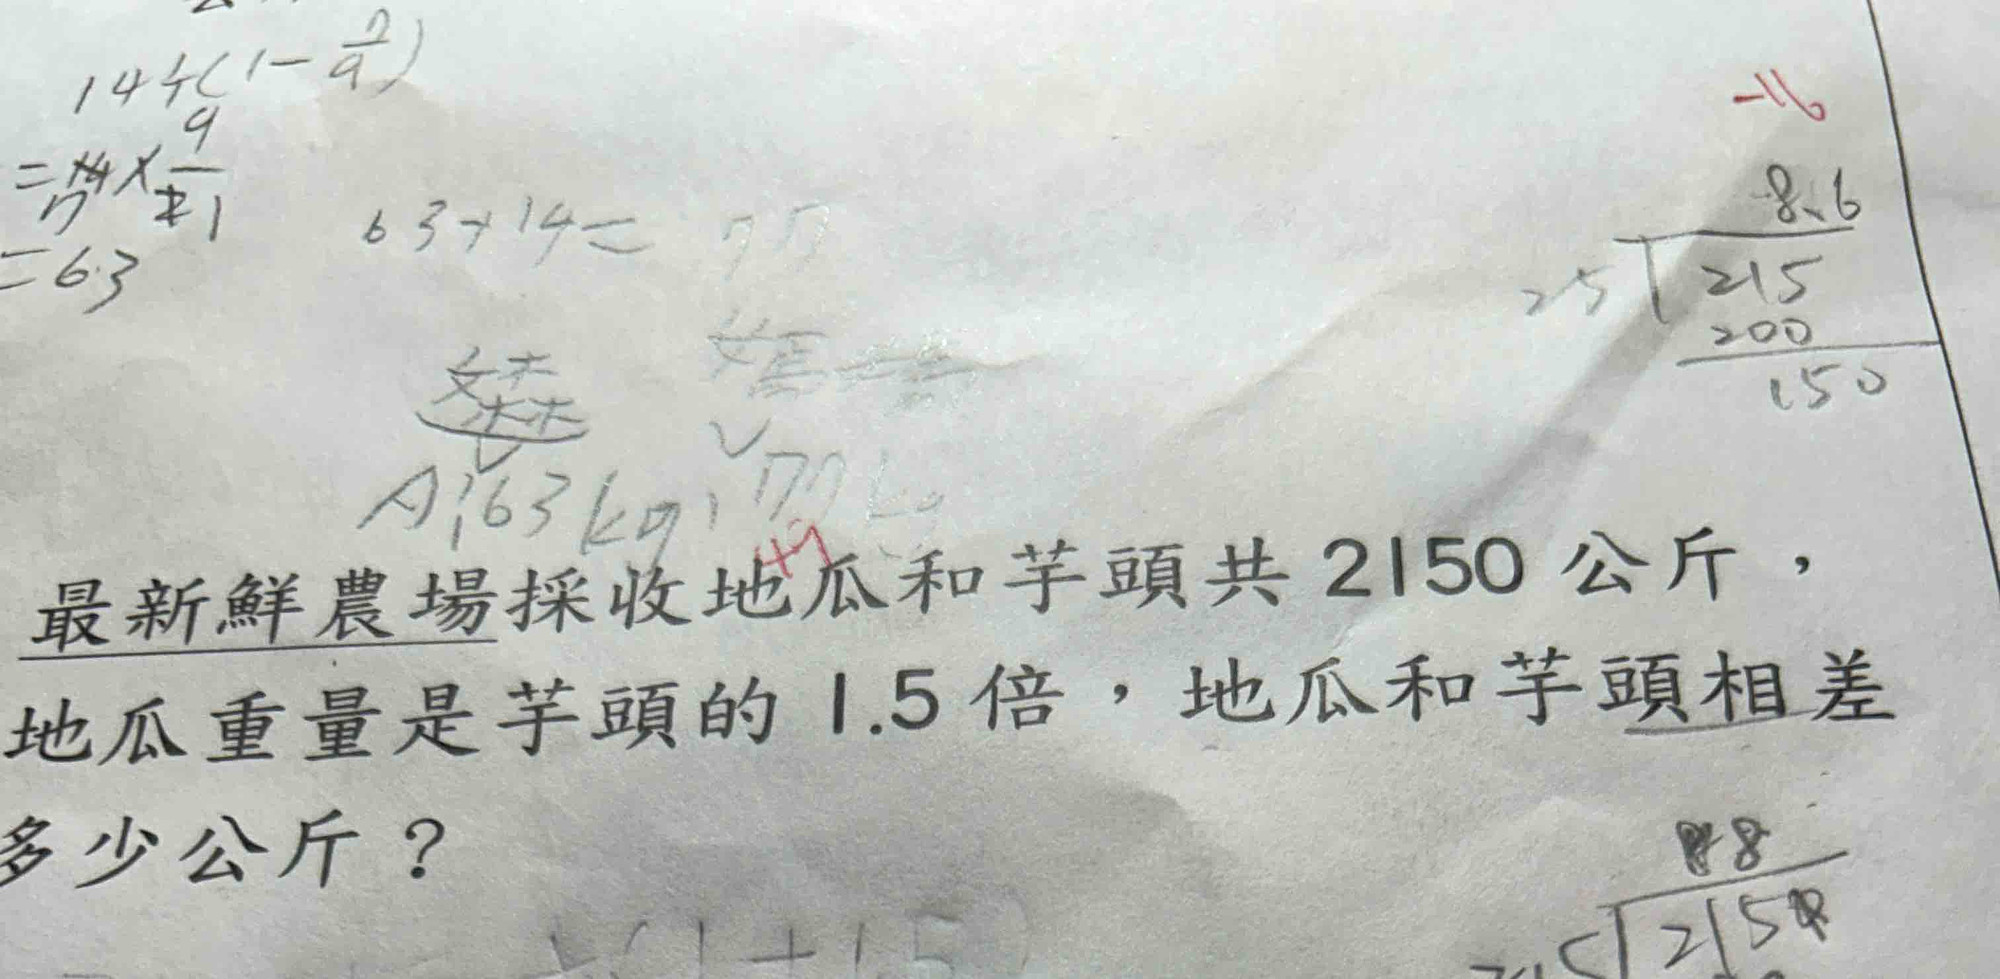 14÷(1-7/9)
=14×9/2
7 1
=63
63+14=77
A:63kg,77kg
+9
-16
8.6
25 215
200
150
最新鮮農場採收地瓜和芋頭共2150公斤，
地瓜重量是芋頭的1.5倍，地瓜和芋頭相差
多少公斤？
÷(1+1.5)
8
215